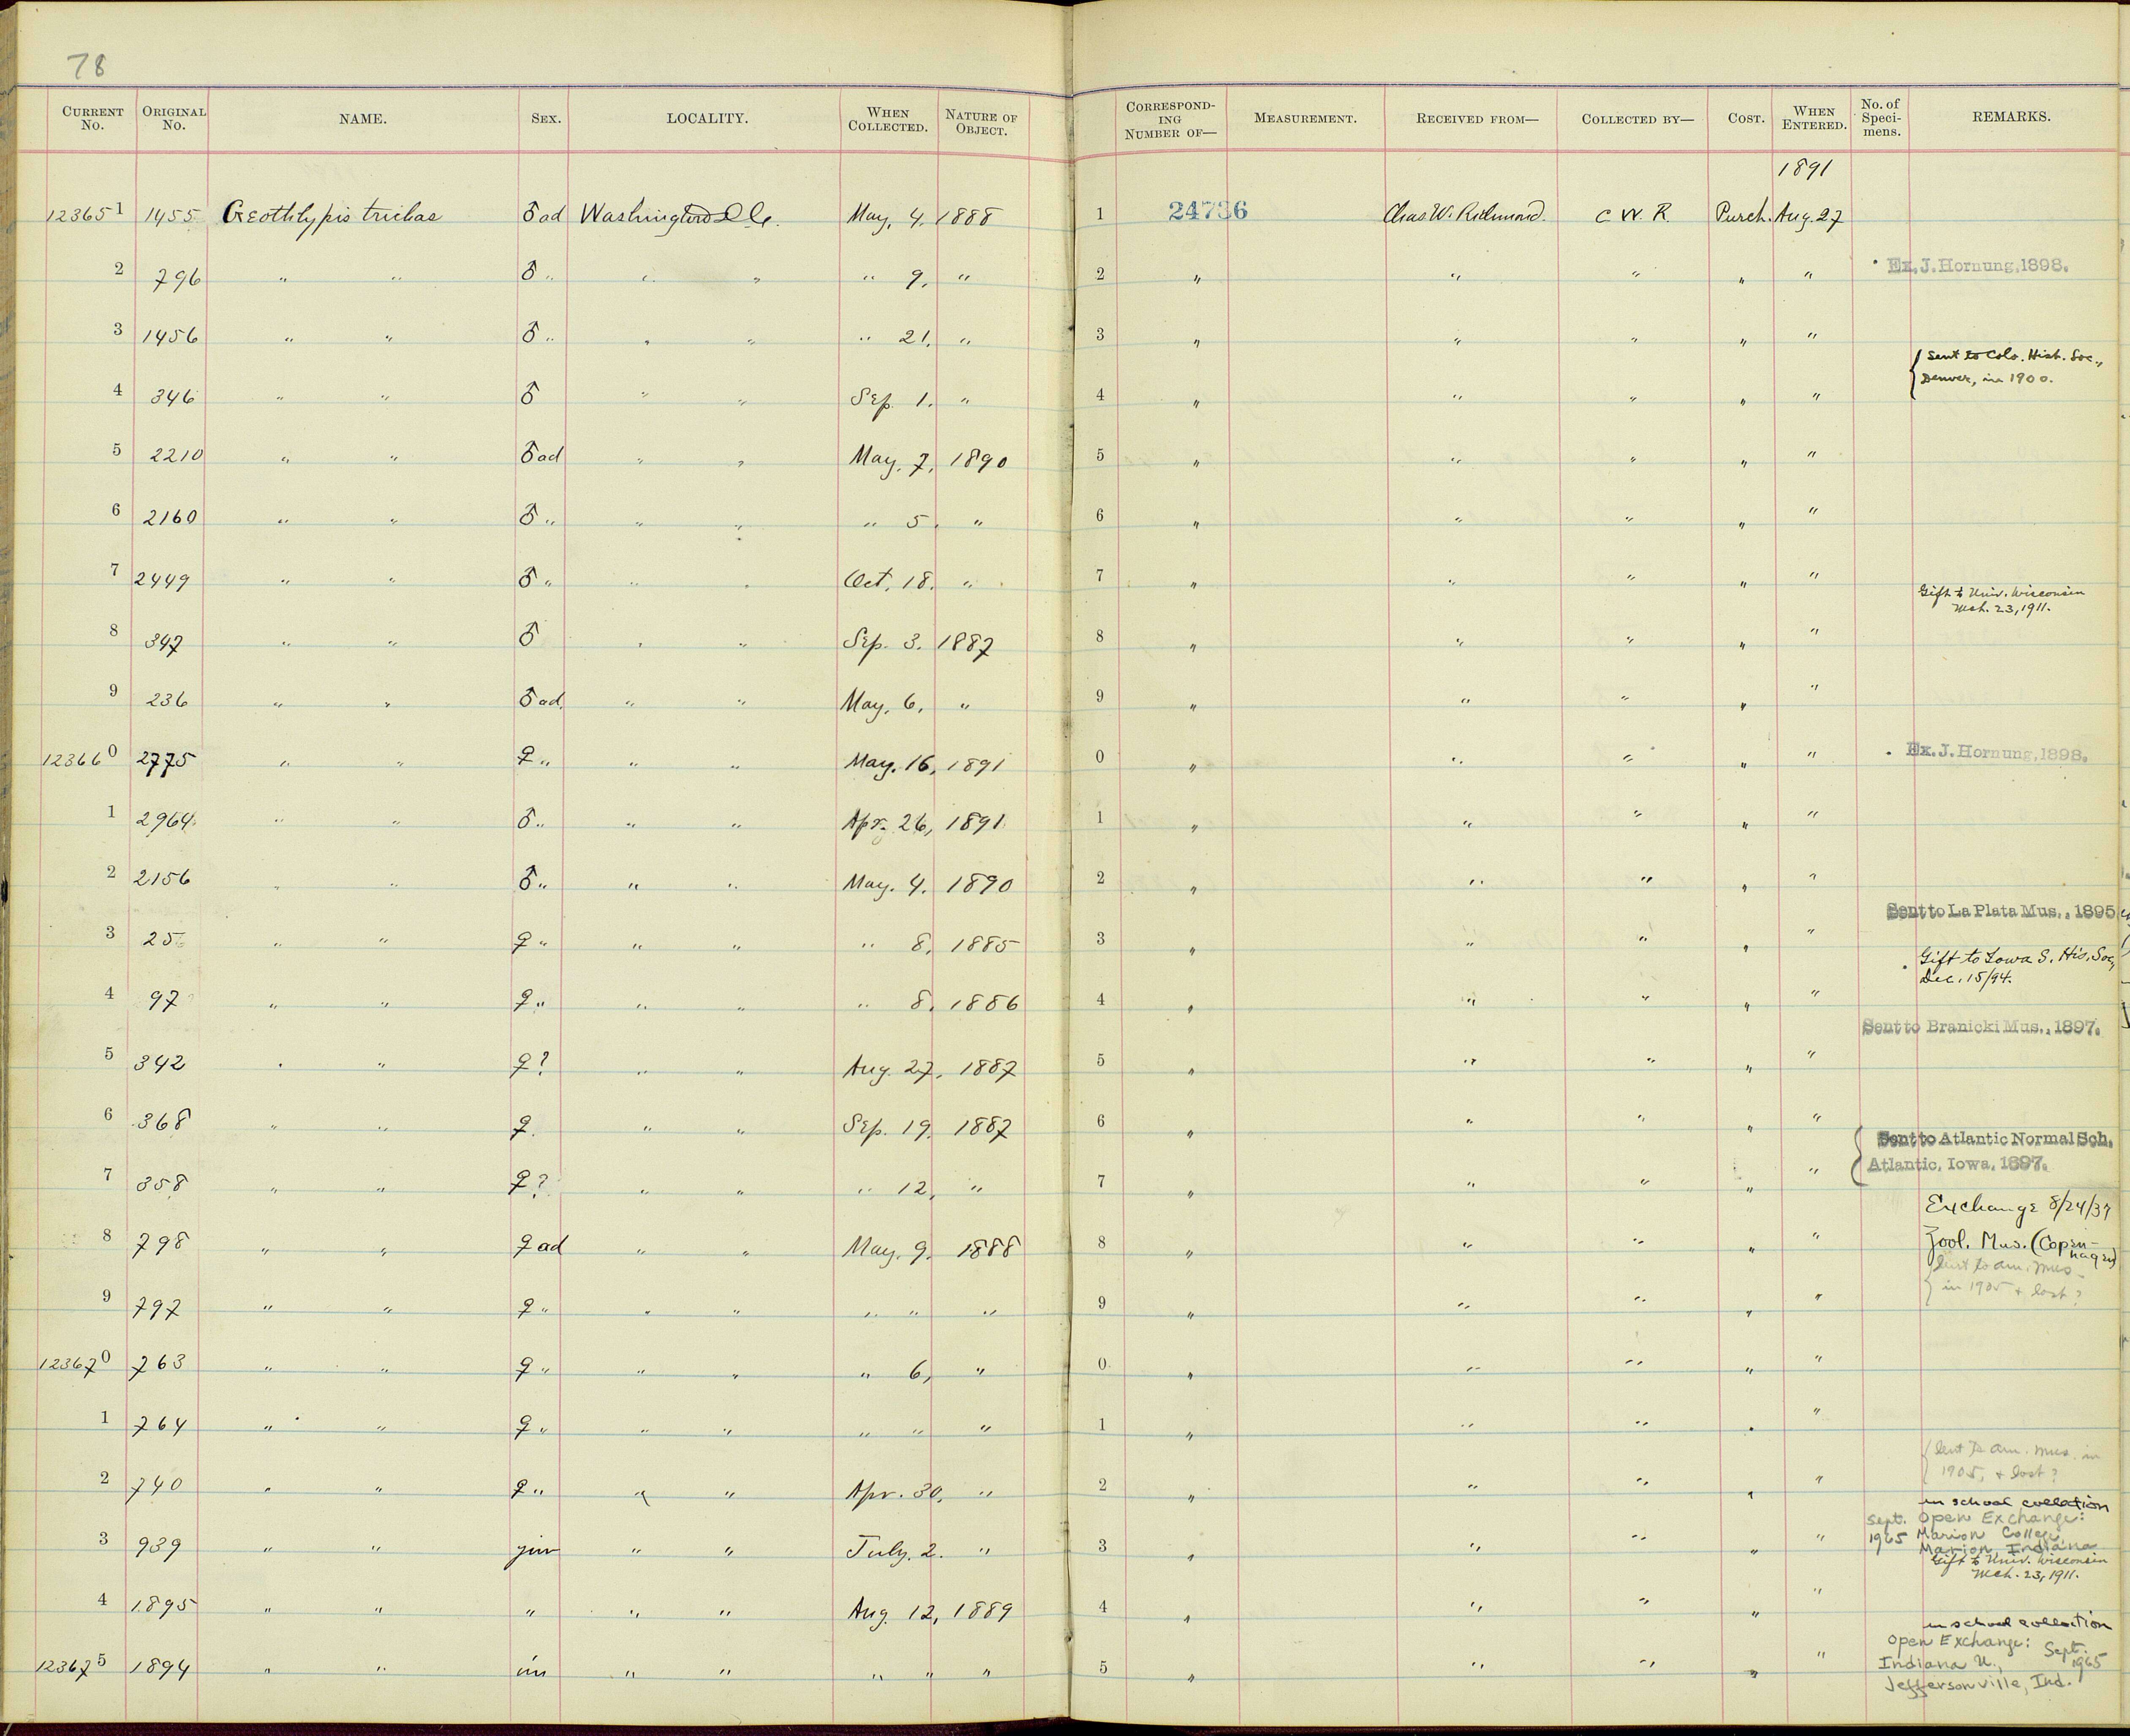 78
CURRENT No. ORIGINAL No. NAME. SEX. LOCALITY. WHEN COLLECTED. NATURE OF OBJECT. CORRESPONDING NUMBER OF— MEASUREMENT. RECEIVED FROM— COLLECTED BY— COST. WHEN ENTERED. No. of Specimens. REMARKS.
1891
123651 1455 Geothlypis trichas ♂ ad Washington D.C. May, 4. 1888 1 24736 Chas W. Richmond. C W. R. Purch. Aug. 27
2 796 " " ♂ " " " " 9, " 2 " " " " " Ex. J. Hornung, 1898.
3 1456 " " ♂ " " " " 21, " 3 " " " " "
4 346 " " ♂ " " Sep. 1. " 4 " " " " " { Sent to Colo. Hist. Soc., Denver, in 1900.
5 2210 " " ♂ ad " " May. 7, 1890 5 " " " " "
6 2160 " " ♂ " " " " 5, " 6 " " " " "
7 2449 " " ♂ " " " Oct. 18. " 7 " " " " "
8 347 " " ♂ " " Sep. 3. 1887 8 " " " " " Gift to Univ. Wisconsin Mch. 23, 1911.
9 236 " " ♂ ad. " " May. 6, " 9 " " " " "
123660 2775 " " ♀ " " " May. 16, 1891 0 " " " " " Ex. J. Hornung, 1898.
1 2964 " " ♂ " " " Apr. 26, 1891 1 " " " " "
2 2156 " " ♂ " " " May. 4. 1890 2 " " " " "
3 25 " " ♀ " " " " 8, 1885 3 " " " " " Sent to La Plata Mus., 1895
4 97 " " ♀ " " " " 8, 1886 4 " " " " " Gift to Iowa S. His. Soc, Dec. 15/94.
5 342 " " ♀? " " Aug. 27, 1887 5 " " " " " Sent to Branicki Mus., 1897.
6 368 " " ♀. " " Sep. 19. 1887 6 " " " " "
7 358 " " ♀? " " " 12, " 7 " " " " " { Sent to Atlantic Normal Sch. Atlantic, Iowa, 1897.
8 798 " " ♀ ad " " May. 9. 1888 8 " " " " " Exchange 8/24/37 Zool. Mus. (Copenhagen)
9 797 " " ♀ " " " " " " 9 " " " " " { lent to Am. Mus. in 1905 & lost?
123670 763 " " ♀ " " " " 6, " 0 " " " " "
1 764 " " ♀ " " " " " " 1 " " " " "
2 740 " " ♀ " " " Apr. 30, " 2 " " " " " { lent to Am. Mus. in 1905, & lost?
3 939 " " juv " " July. 2. " 3 " " " " " in school collection Sept. 1965 Open Exchange: Marion College Marion, Indiana
4 1895 " " " " " Aug. 12, 1889 4 " " " " " Gift to Univ. Wisconsin Mch. 23, 1911.
123675 1894 " " im " " " " " 5 " " " " " in school collection Open Exchange: Sept. 1965 Indiana U., Jeffersonville, Ind.